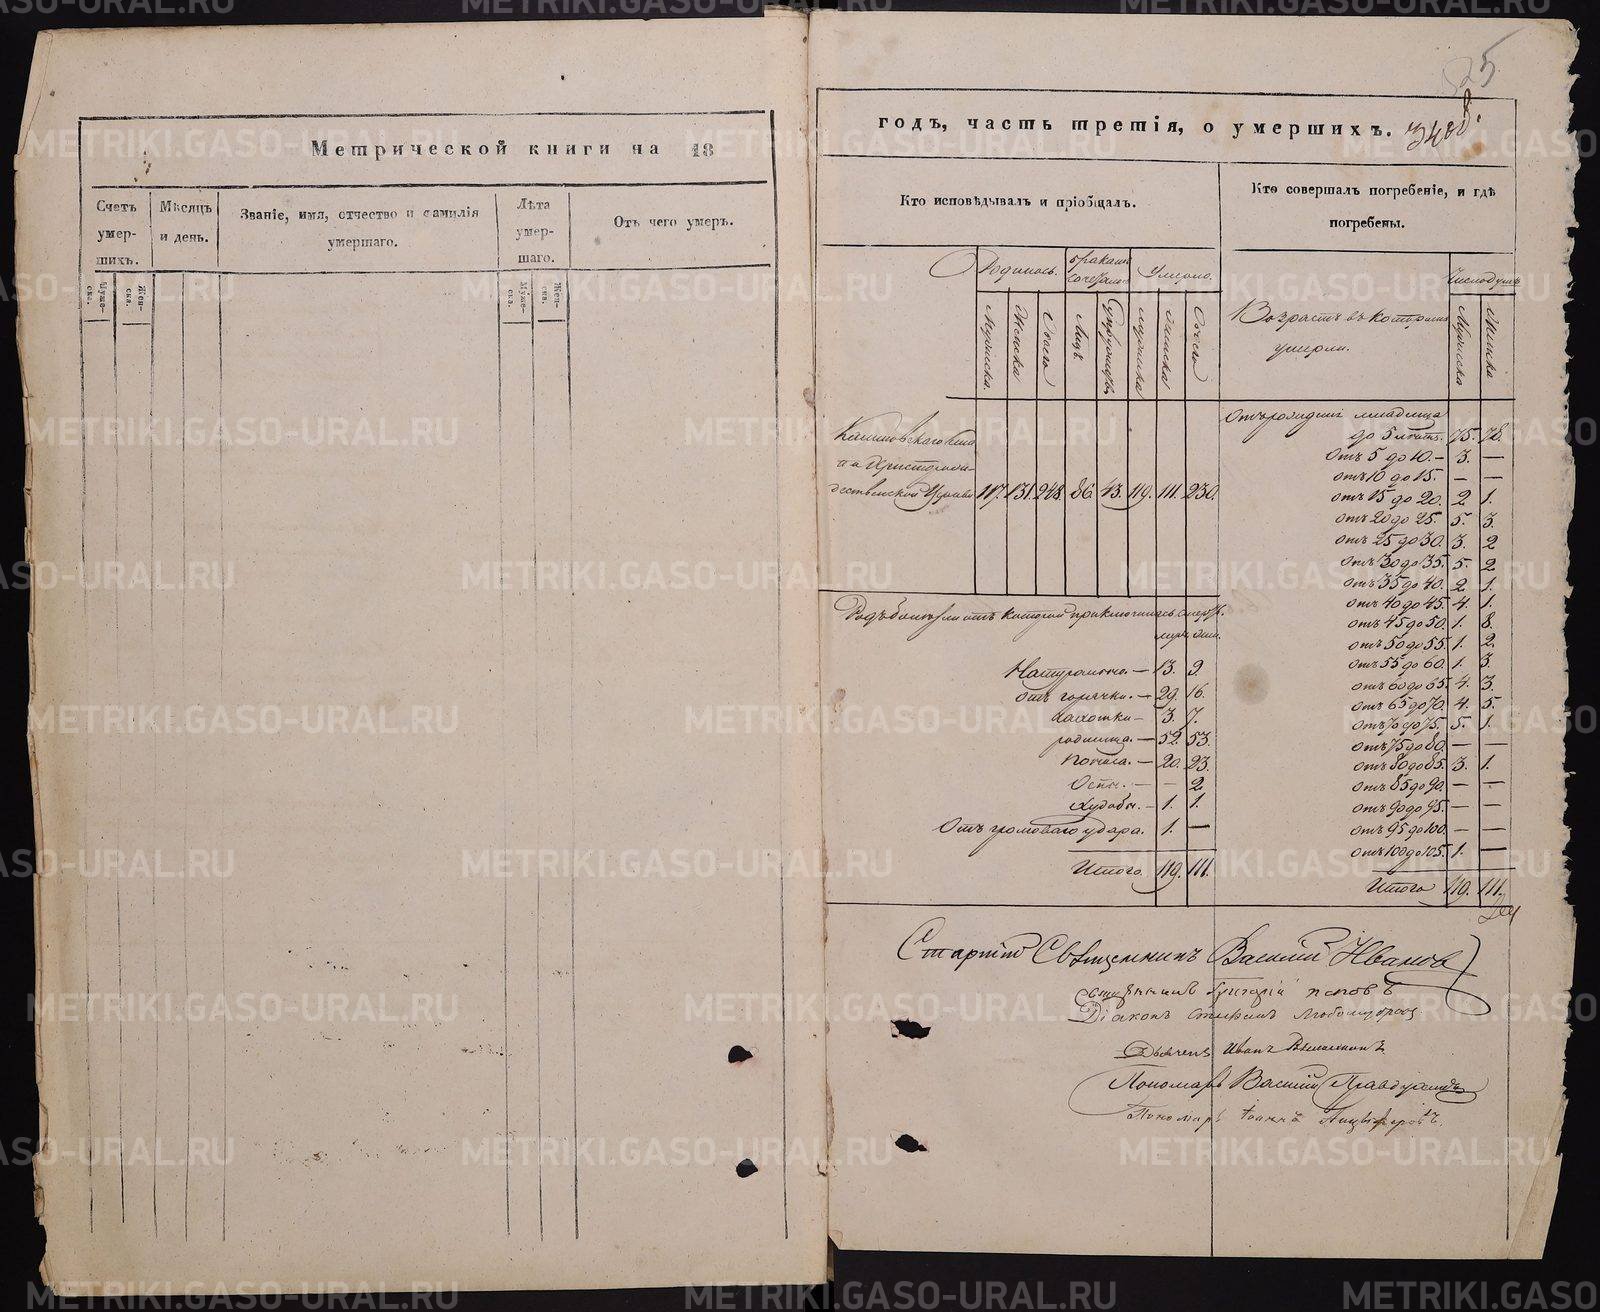 Метрической книги на 18
Счетъ умер-шихъ.
Мѣсяцъ и день.
Званіе, имя, отчество и фамилія умершаго.
Лѣта умер-шаго.
Отъ чего умеръ.
Муже-ска.
Жен-ска.
Муже-ска.
Жен-ска.
25
годъ, часть третія, о умершихъ.
Кто исповѣдывалъ и пріобщалъ.
Кто совершалъ погребеніе, и гдѣ погребены.
Родилось.
Умерло.
Число душъ
Мужеска.
Женска
Обоего
Лицъ
Мужеска
Женска
Обоего
Возрастъ въ которомъ умерли.
Мужеска
Женска
117. 131. 248. 86. 43. 119. 111. 230.
до 5 лѣтъ. 75. 78.
Отъ 5 до 10. — 3. —
Отъ 10 до 15. — —
Отъ 15 до 20. 2. 1.
Отъ 20 до 25. 5. 3.
Отъ 25 до 30. 3. 2
Отъ 30 до 35. 5. 2
Отъ 35 до 40. 2 1.
Отъ 40 до 45. 4. 1.
Отъ 45 до 50. 1. 8.
Отъ 50 до 55. 1. 2.
Отъ 55 до 60. 1. 3.
Отъ 60 до 65. 4. 3.
Отъ 65 до 70. 4. 5.
Отъ 70 до 75. 5. 1.
Отъ 75 до 80. — —
Отъ 80 до 85. 3. 1.
Отъ 85 до 90. — —
Отъ 90 до 95. — —
Отъ 95 до 100. — —
Отъ 100 до 105. 1. —
Итого 119. 111.
Родъ болѣзни отъ которой приключилась смерть.
Натуральн. — 13. 9.
Отъ горячки. — 29. 16.
чахотки — 3. 7.
родимца. — 52. 53.
Поноса. — 20. 23.
Оспы. — — 2
Худобы. — 1. 1.
Отъ громоваго удара. 1. —
Итого. 119. 111.
Старшій Священникъ Василій Ивановъ
Священникъ Григорій Поповъ
Діаконъ Стефанъ Любомудровъ
Дьячекъ Иванъ
Пономарь Василій
Пономарь Іоаннъ
METRIKI.GASO-URAL.RU